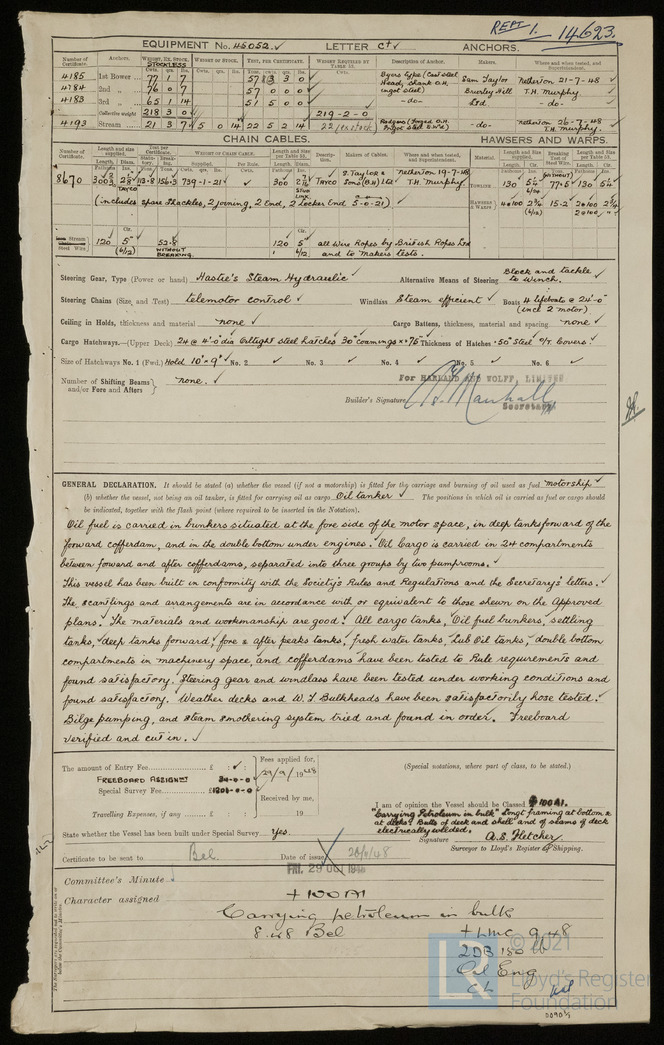 REPT 1. 14623.
EQUIPMENT No. 45052 ✓ LETTER C† ✓ ANCHORS.
Number of Certificate. Anchors. WEIGHT, EX. STOCK. STOCKLESS WEIGHT OF STOCK. TEST, PER CERTIFICATE. WEIGHT REQUIRED BY TABLE 53. Description of Anchor. Makers. Where and when tested, and Superintendent.
4185 1st Bower 77 1 7 57 13 3 0 Byers type (Cast steel Sam Taylor Netherton 21-7-48
4784 2nd " 76 0 7 57 0 0 0 Head; shank O.H. Brierley Hill T.H. Murphy.
4183 3rd " 65 1 14 51 5 0 0 ingot steel) -do- Ltd. -do-
Collective weight 218 3 0 219-2-0
4193 Stream 21 3 7 5 0 14 22 5 2 14 22 (ex stock) Rodgers (Forged O.H. Ingot steel End) -do- Netherton 26-7-48 T.H. Murphy.
CHAIN CABLES. HAWSERS AND WARPS.
8670 300 2 7/8 TAYCO 113.8 156.3 739-1-21 ✓ 300 2 7/8 STUD LINK Tayco S. Taylor & Sons (B.H) Ltd Netherton 19-7-48 T.H. Murphy. TOWLINE 130 5¼ 6/24 WITHOUT 77.5 130 5¼
(includes spare Shackles, 2 joining, 2 End, 2 Locker End 5-0-21) HAWSERS & WARPS 4@100 2¾ (6/12) 15.2 2@100 2¾
Stream Steel Wire 120 5" (6/12) 52.8 WITHOUT BREAKING. 120 5" (6/12) all Wire Ropes by British Ropes Ltd and to Makers tests.
Steering Gear, Type (Power or hand) Hastie's Steam Hydraulic Alternative Means of Steering Block and tackle to winch.
Steering Chains (Size and Test) telemotor control ✓ Windlass Steam efficient ✓ Boats 4 lifeboats @ 24'-0" (incl 2 motor)
Ceiling in Holds, thickness and material none ✓ Cargo Battens, thickness, material and spacing none ✓
Cargo Hatchways.—(Upper Deck) 24 @ 4'-0" dia Oiltight steel hatches 30" coamings x .75" Thickness of Hatches .50" Steel O/T Covers.
Size of Hatchways No. 1 (Fwd.) Hold 10' x 9' No. 2 No. 3 No. 4 No. 5 No. 6
Number of Shifting Beams and/or Fore and Afters none. ✓
For HARLAND AND WOLFF, LIMITED
Builder's Signature Marshall
Secretary
GENERAL DECLARATION. It should be stated (a) whether the vessel (if not a motorship) is fitted for the carriage and burning of oil used as fuel motorship
(b) whether the vessel, not being an oil tanker, is fitted for carrying oil as cargo Oil tanker ✓ The positions in which oil is carried as fuel or cargo should
be indicated, together with the flash point (where required to be inserted in the Notation).
Oil fuel is carried in bunkers situated at the fore side of the motor space, in deep tanks forward of the
forward cofferdam, and in the double bottom under engines. Oil Cargo is carried in 24 compartments
between forward and after cofferdams, separated into three groups by two pumprooms. ✓
This vessel has been built in conformity with the Society's Rules and Regulations and the Secretary's letters. ✓
The scantlings and arrangements are in accordance with or equivalent to those shewn on the Approved
plans. The materials and workmanship are good. All cargo tanks, Oil fuel bunkers, settling
tanks, deep tanks forward, fore & after peaks tanks, fresh water tanks, Lub Oil tanks, double bottom
compartments in machinery space, and cofferdams have been tested to Rule requirments and
found satisfactory. Steering gear and windlass have been tested under working conditions and
found satisfactory. Weather decks and W.T Bulkheads have been satisfactorily hose tested.
Bilge pumping, and steam smothering system tried and found in order. Freeboard
verified and cut in. ✓
The amount of Entry Fee £ : ✓ : Fees applied for, 29/9/1948
FREEBOARD ASSIGNMT 34-0-0
Special Survey Fee £1201-0-0 Received by me,
Travelling Expenses, if any £ : : 19
(Special notations, where part of class, to be stated.)
I am of opinion the Vessel should be Classed ✠100A1.
"Carrying Petroleum in bulk" Longt framing at bottom &
at decks. Butts of deck and shell and of seams of deck
electrically welded.
State whether the Vessel has been built under Special Survey Yes.
Signature A.S. Fletcher
Surveyor to Lloyd's Register of Shipping.
Certificate to be sent to Bel. Date of issue
FRI. 29 OCT 1948
Committee's Minute
Character assigned +100A1
Carrying petroleum in bulk
8.48 Bel +LMC 9.48
2DB 150 lb
Oil Eng
CL
© 2021
Lloyd's Register
Foundation